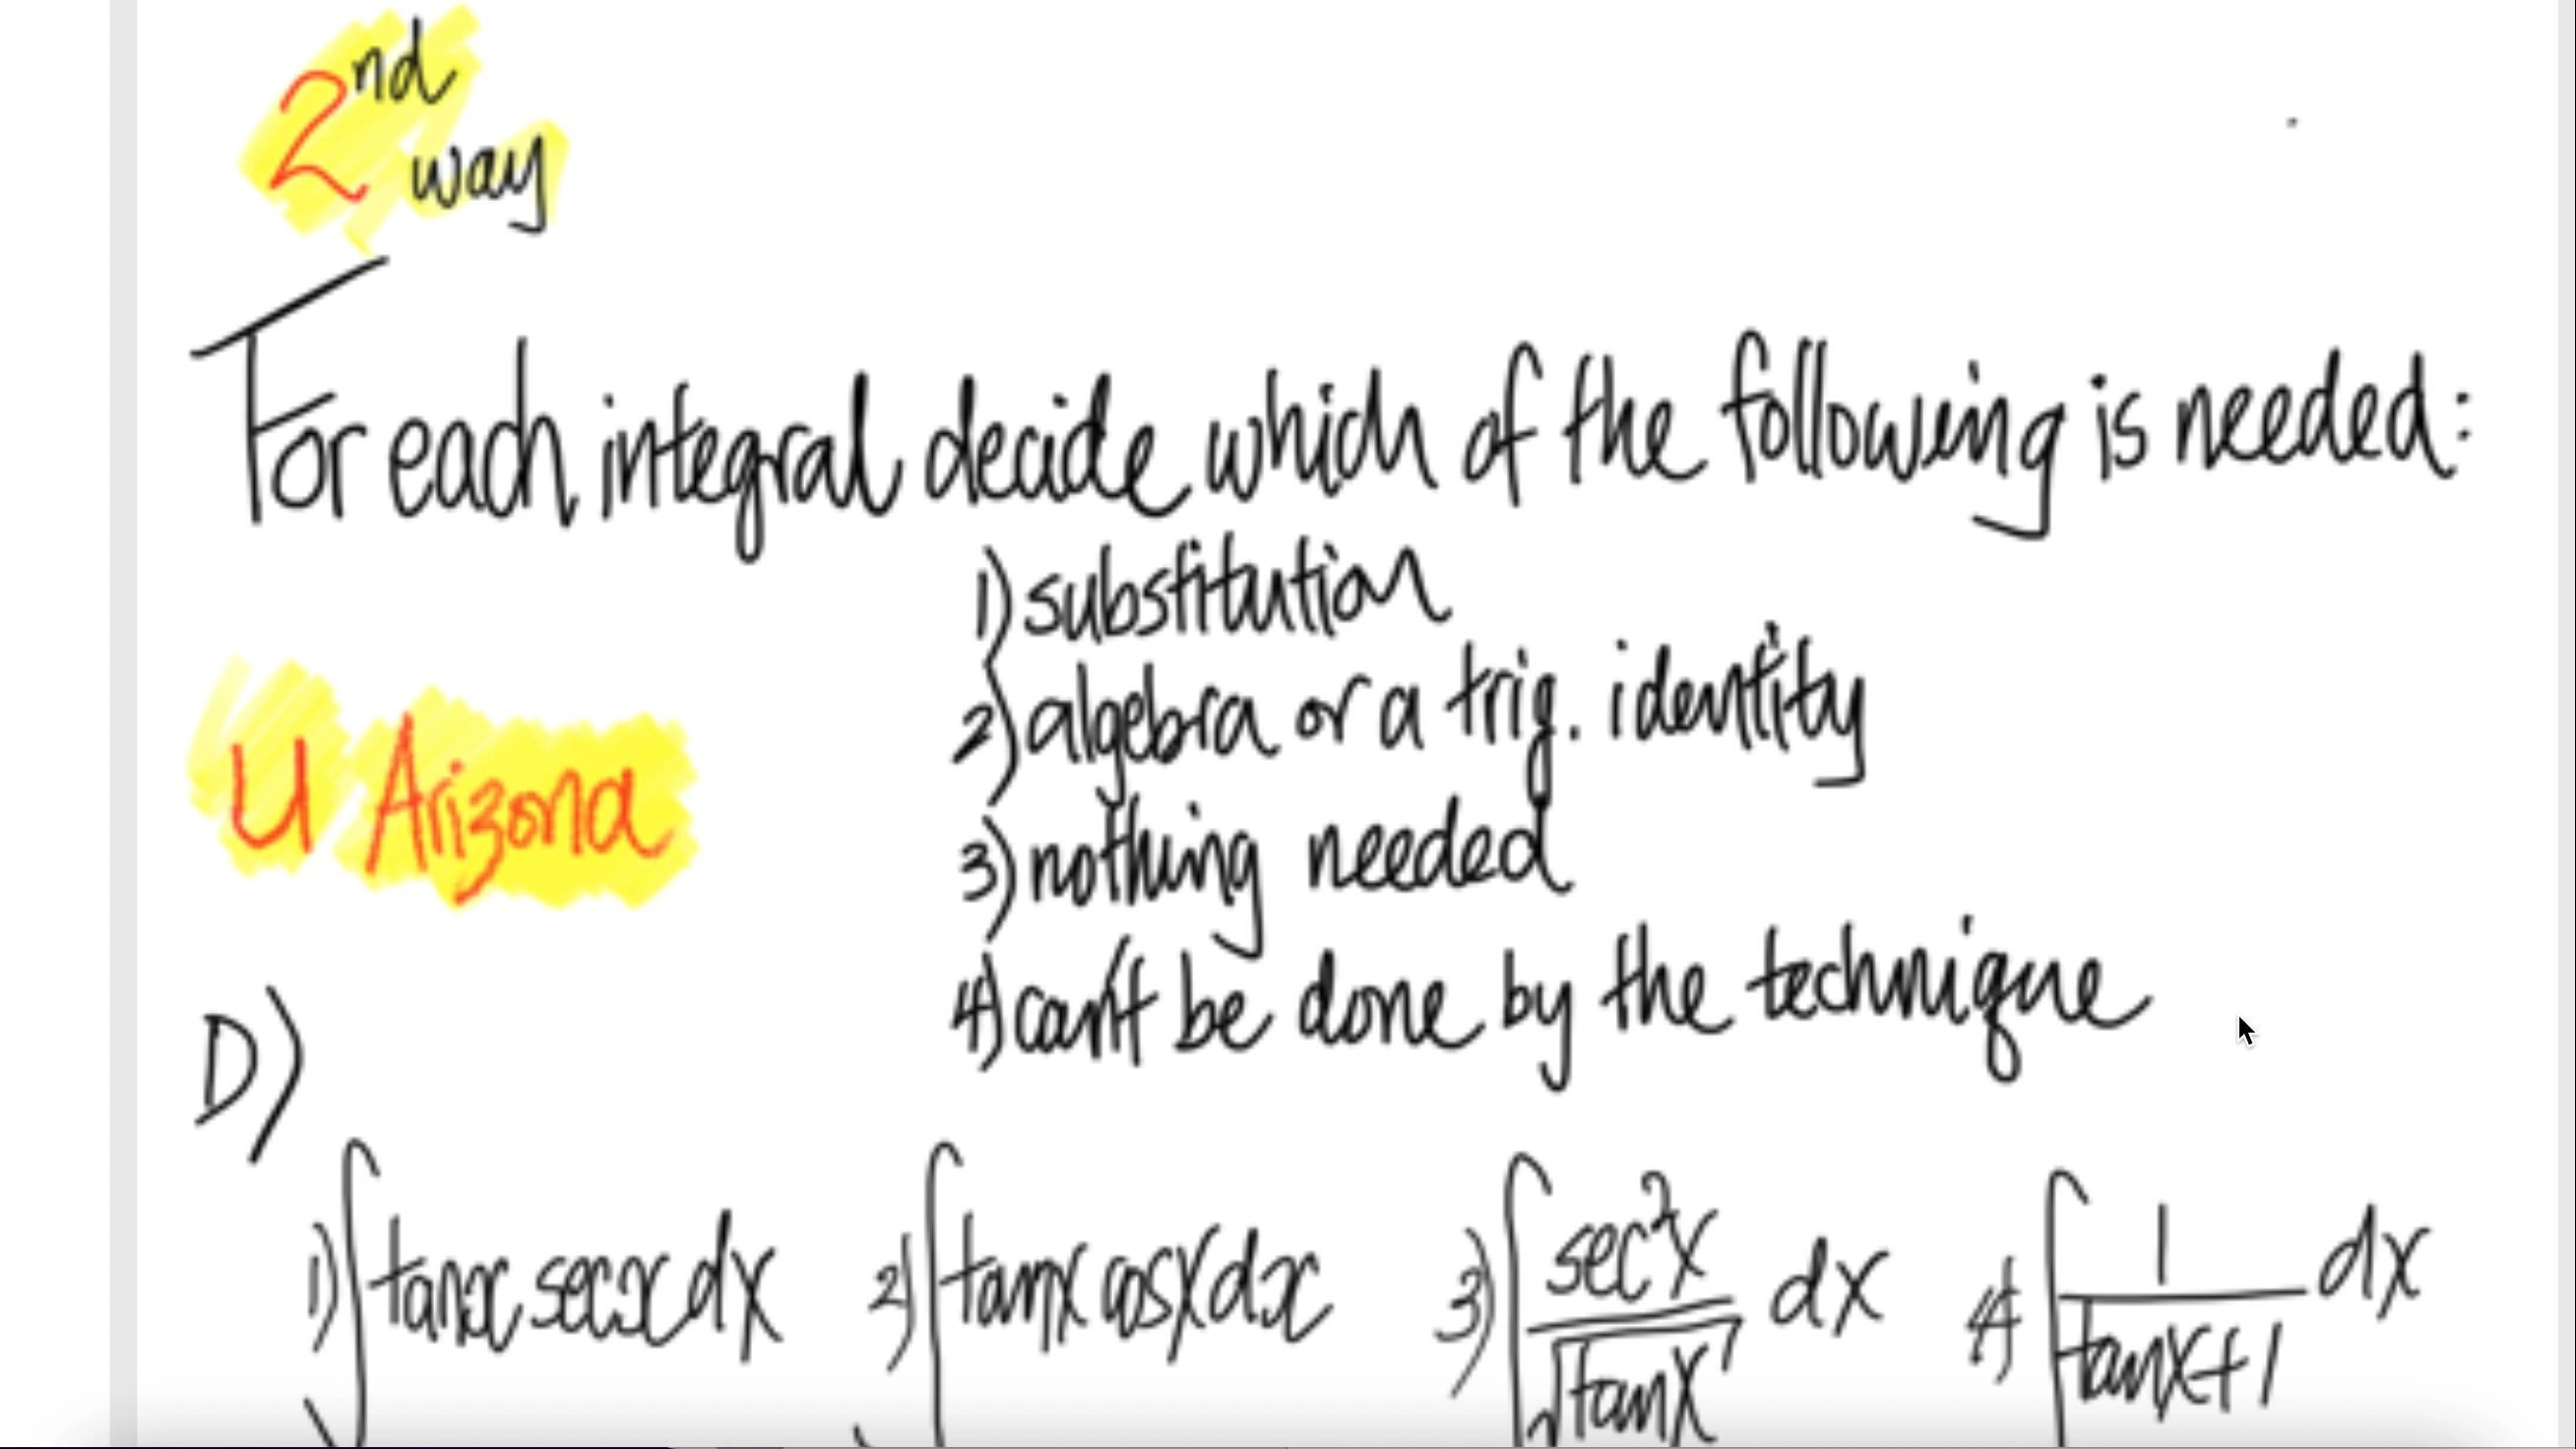 2nd way
For each integral decide which of the following is needed:
1) substitution
2) algebra or a trig. identity
3) nothing needed
4) can't be done by the technique
U Arizona
D)
1) ∫tanx secx dx 2) ∫tanx cosx dx 3) ∫sec²x/√tanx dx 4) ∫1/(tanx+1) dx